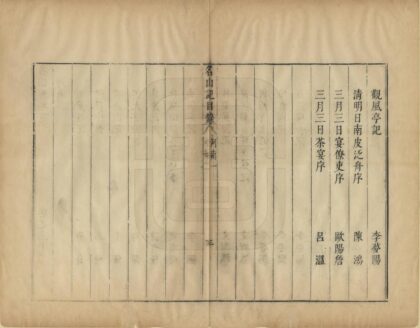 觀風亭記 李夢陽
清明日南皮泛舟序 陳鴻
三月三日宴僚吏序 歐陽詹
三月三日茶宴序 呂溫
名山記目錄 河南